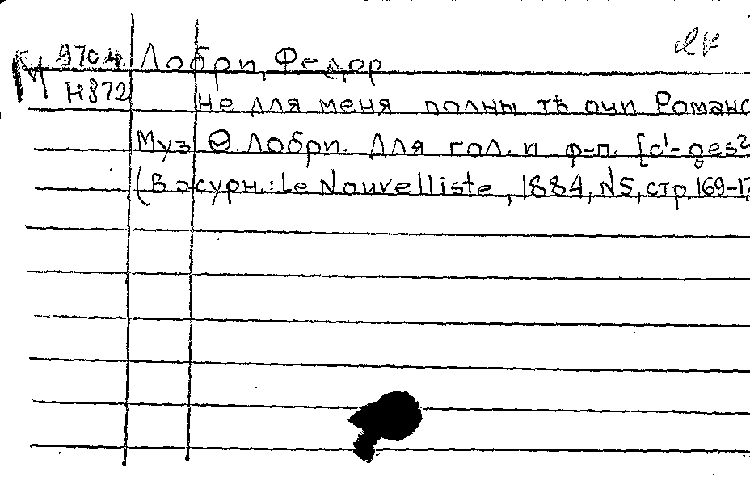 М 970-4 Лобри, Федор
Н372 Не для меня полны тѣ очи Романс
Муз Ѳ Лобри. Для гол. и ф-п. [d'-ges²
(В журн.: Le Nouvelliste, 1884, N5, стр. 169-17